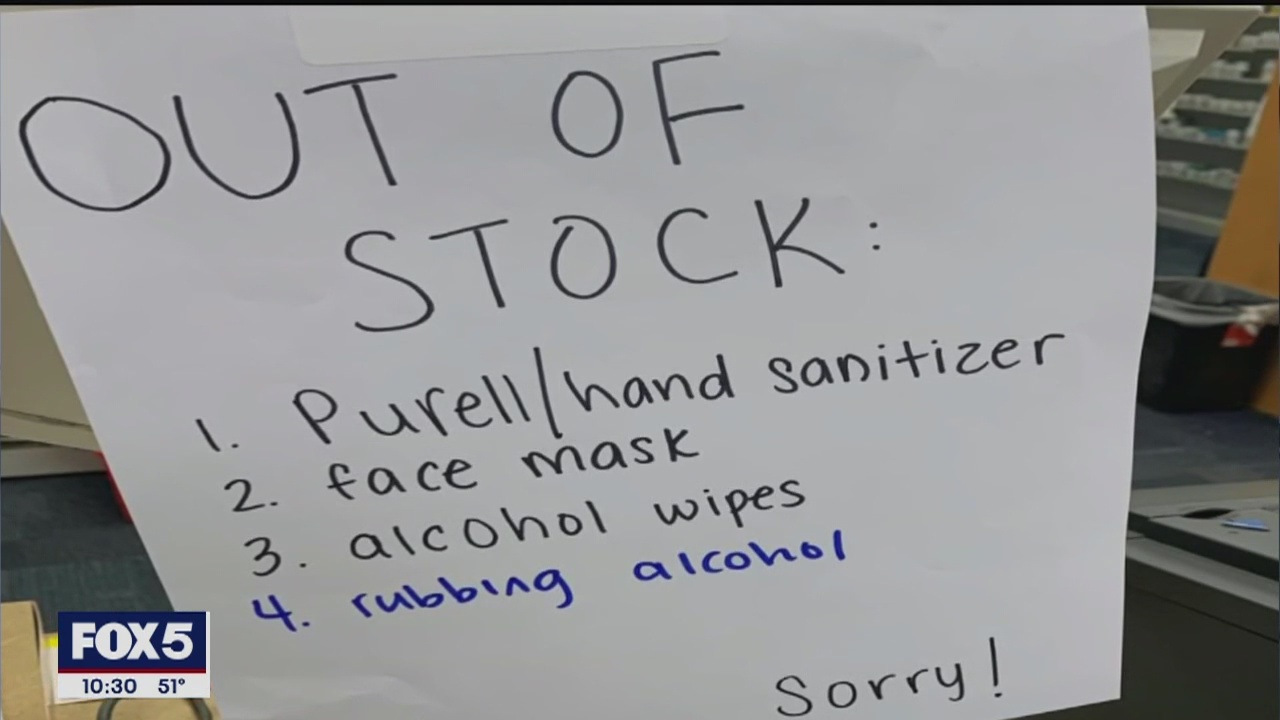 OUT OF
STOCK:
1. Purell/hand sanitizer
2. face mask
3. alcohol wipes
4. rubbing alcohol
Sorry!
FOX5
10:30 51°